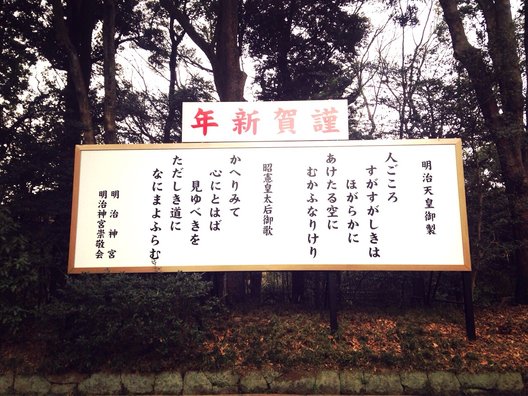 謹賀新年
明治天皇御製
人ごころ
すがすがしきは
ほがらかに
あけたる空に
むかふなりけり
昭憲皇太后御歌
かへりみて
心にとはば
見ゆべきを
ただしき道に
なにまよふらむ
明治神宮
明治神宮崇敬会